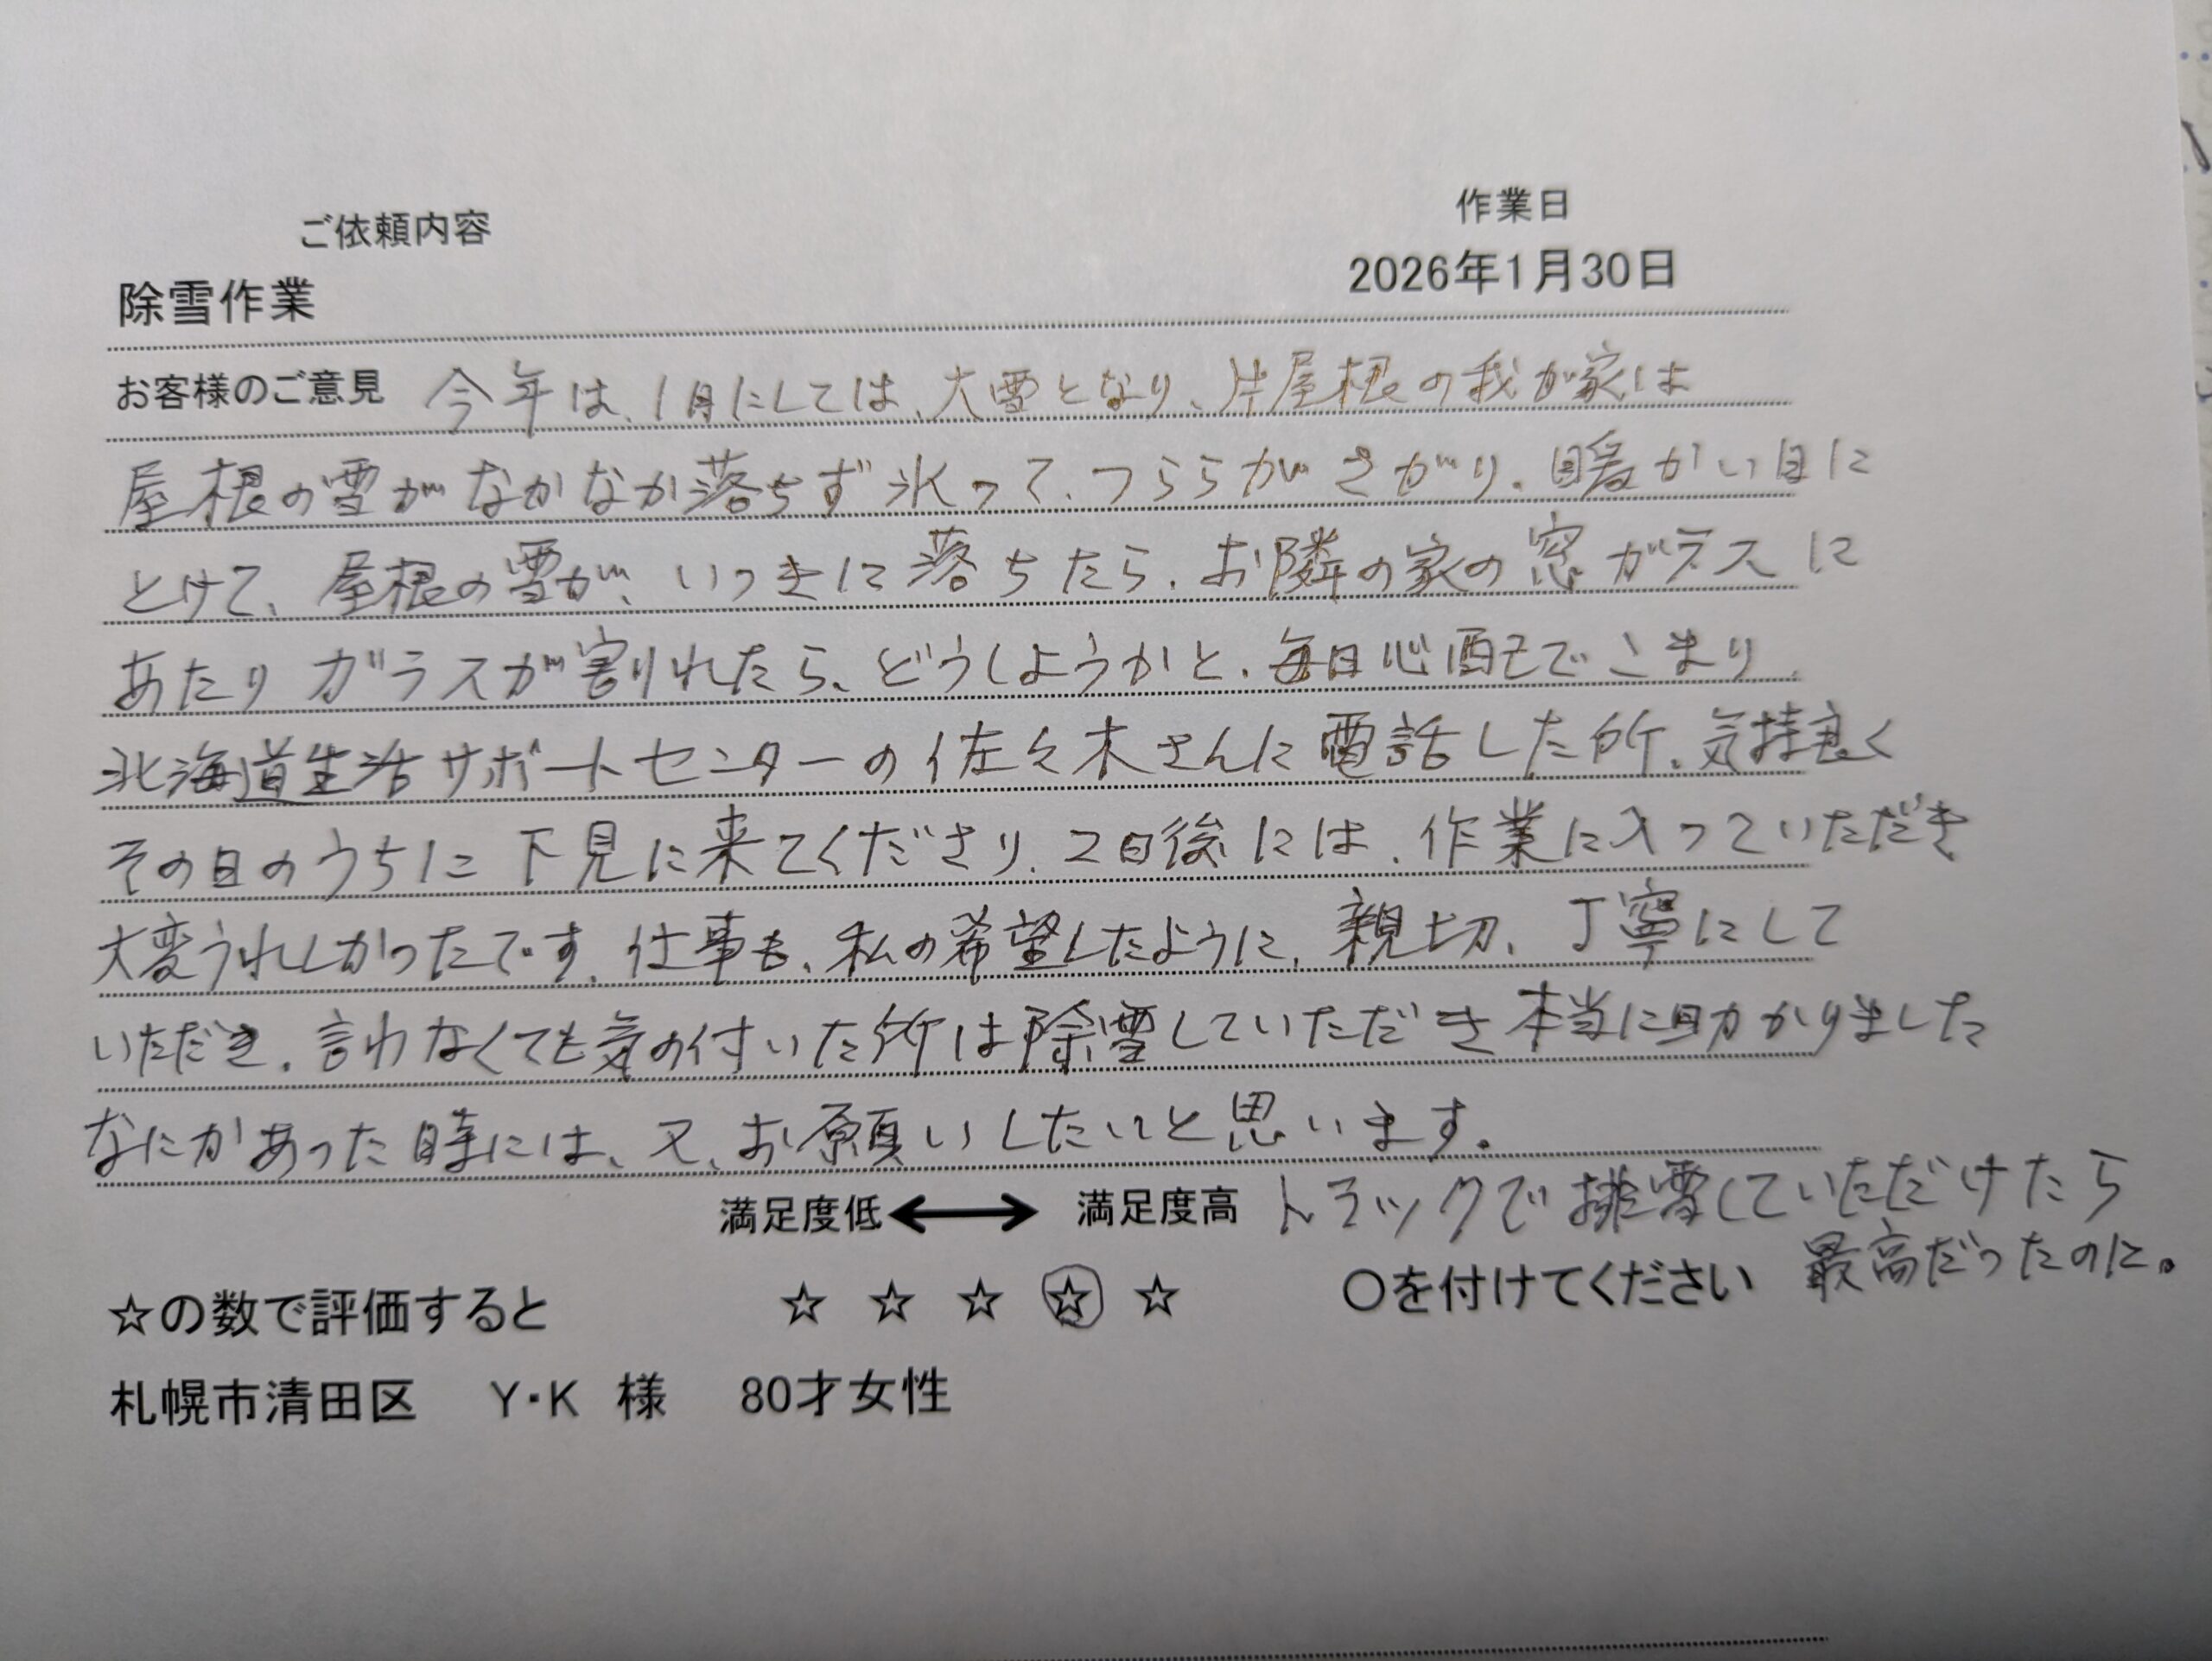 ご依頼内容
作業日
除雪作業
2026年1月30日
お客様のご意見 今年は、1月にしては、大雪となり、片屋根の我が家は
屋根の雪がなかなか落ちず氷って、つららがさがり、暖かい日に
とけて、屋根の雪が、いっきに落ちたら、お隣の家の窓ガラスに
あたりガラスが割れたら、どうしようかと、毎日心配でこまり、
北海道生活サポートセンターの佐々木さんに電話した所、気持良く
その日のうちに下見に来てくださり、2日後には、作業に入っていただき
大変うれしかったです。仕事も、私の希望したように、親切、丁寧にして
いただき、言わなくても気の付いた所は除雪していただき本当に助かりました
なにかあった時には、又、お願いしたいと思います。
満足度低 ⟷ 満足度高 トラックで排雪していただけたら
最高だったのに。
☆の数で評価すると ☆ ☆ ☆ ☆ ☆ ○を付けてください
札幌市清田区 Y・K 様 80才女性